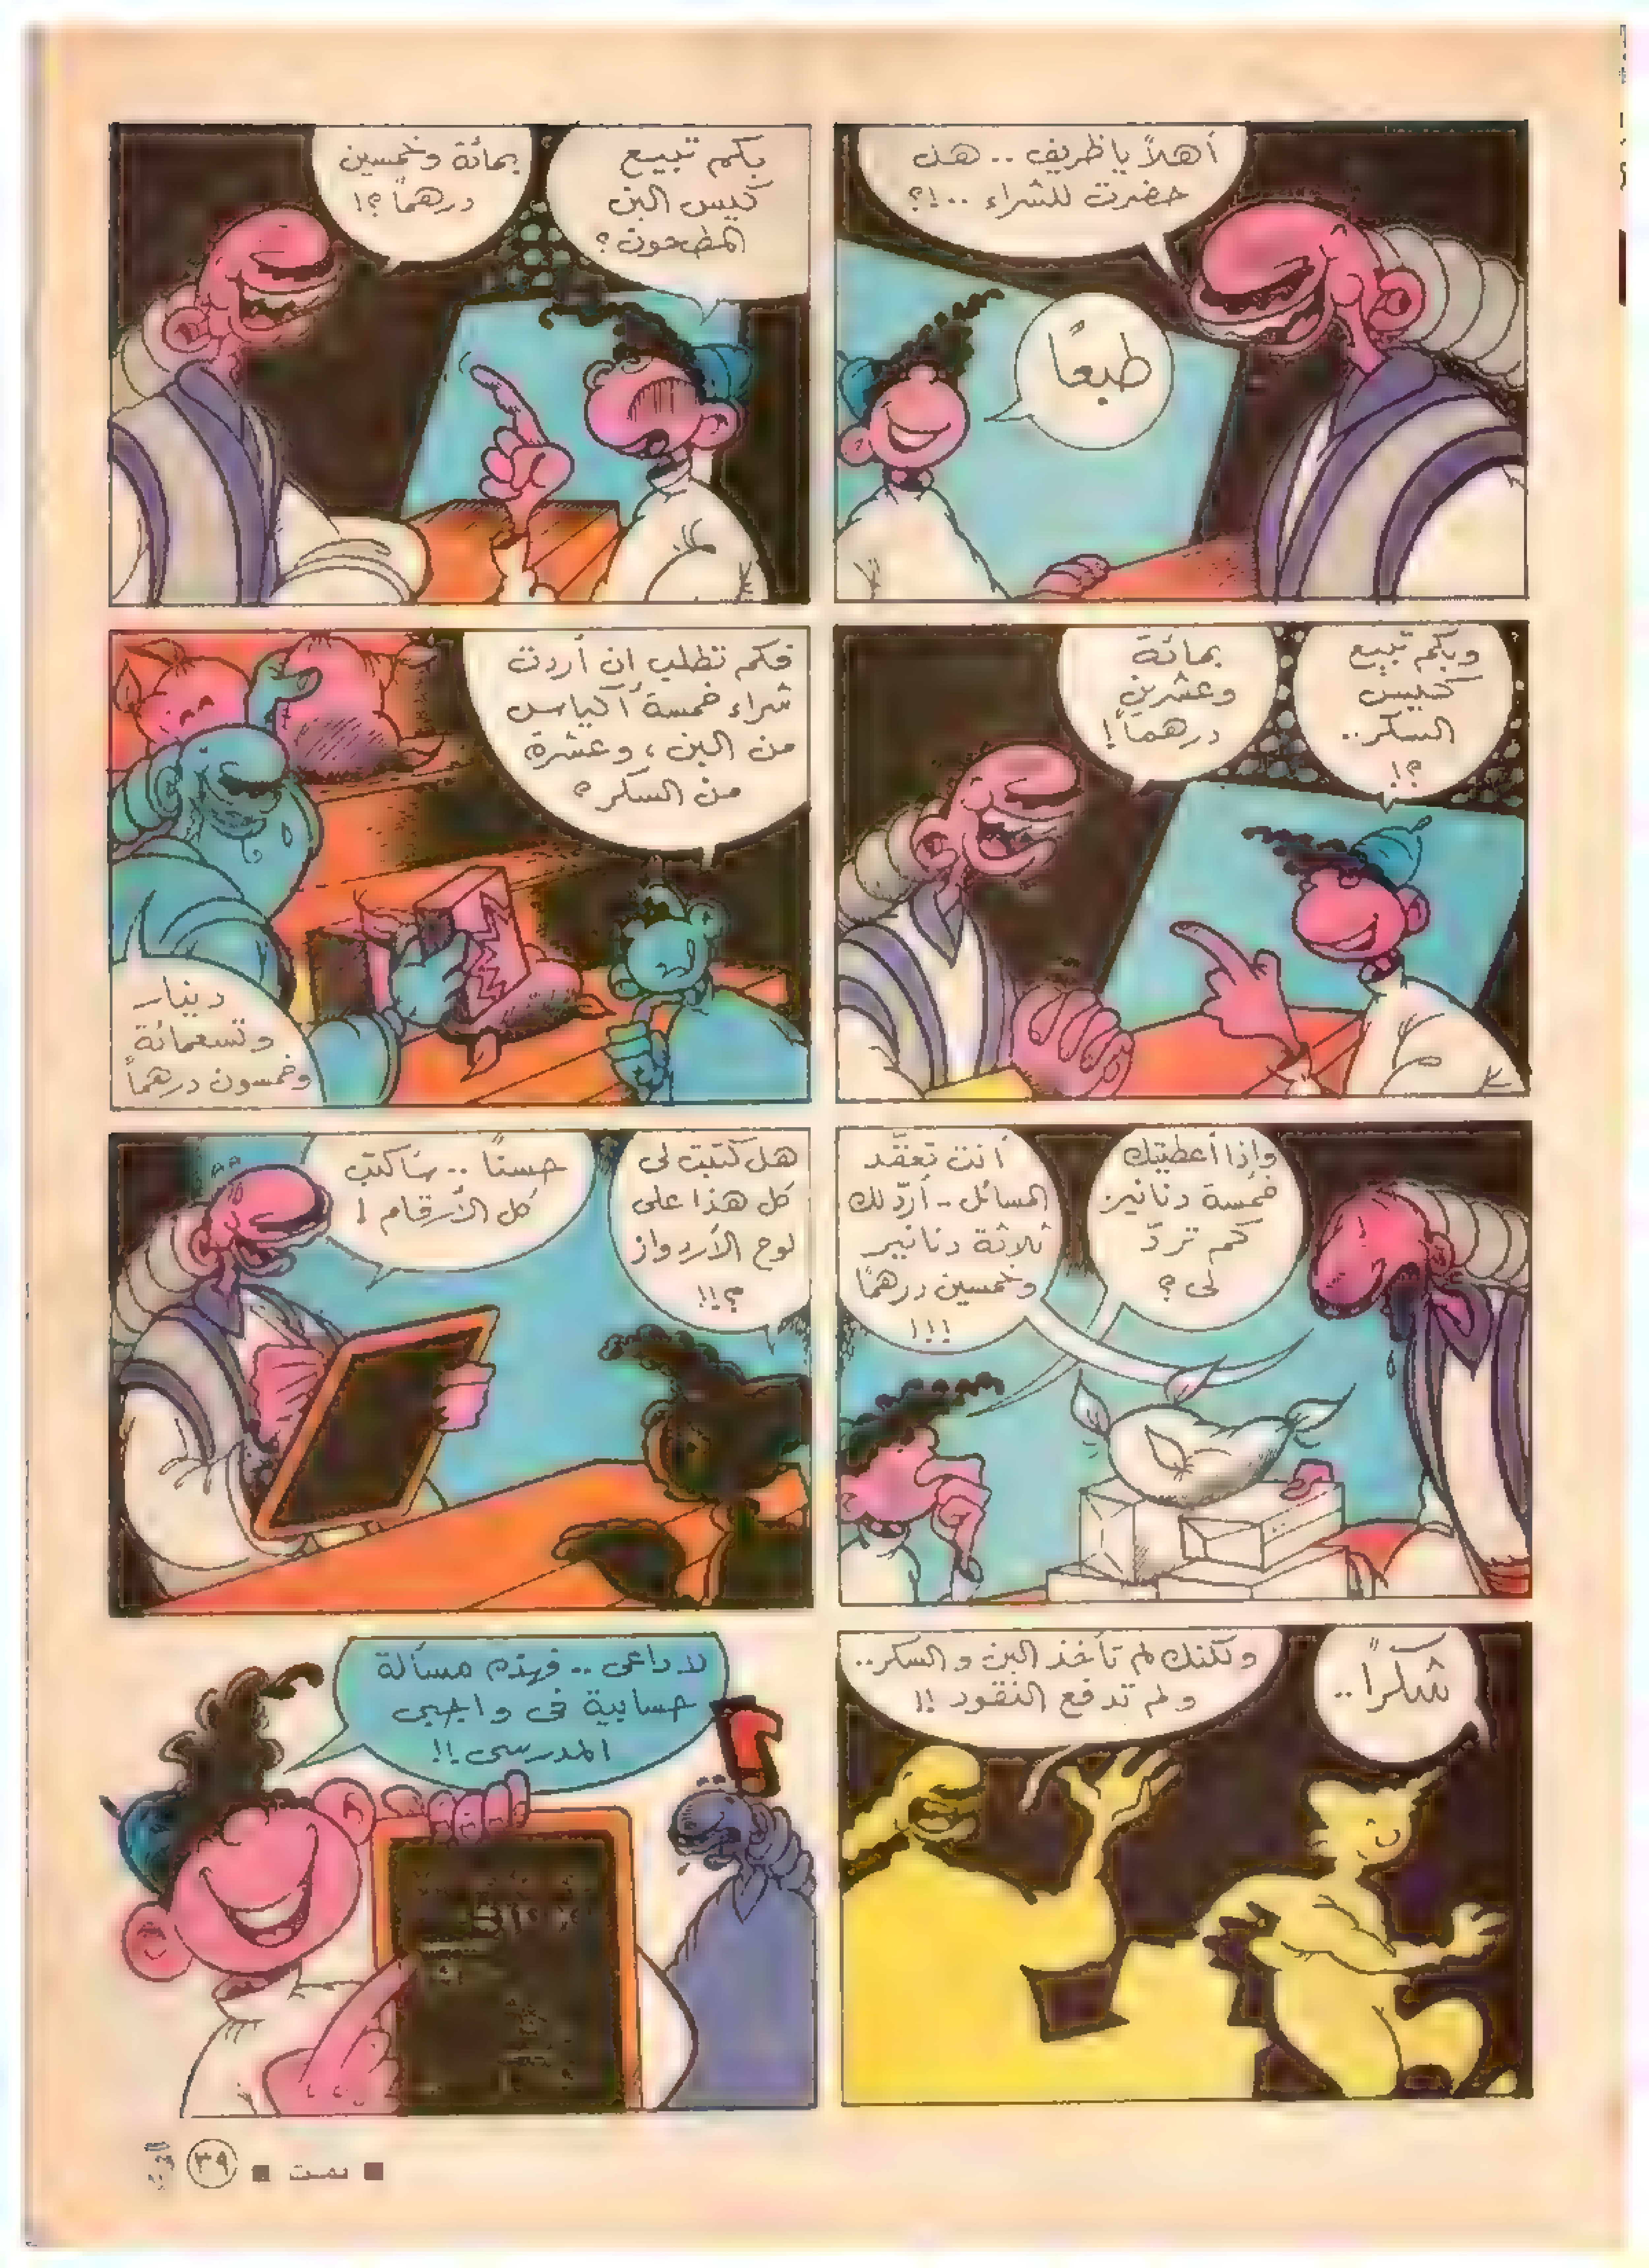 أهلاً يا ظريف .. هل
حضرت للشراء ..!؟
طبعًا
بكم تبيع
كيس البن
المطحون؟
بمائة وخمسين
درهماً ؟!
وبكم تبيع
كيس
السكر..
؟!
بمائة
وعشرين
درهماً!
فكم تطلب ان أردت
شراء خمسة أكياس
من البن ، وعشرة
من السكر ؟
دينار
وتسعمائة
وخمسون درهماً
وإذا أعطيتك
خمسة دنانير
كم تردّ
لى ؟
أنت تعقّد
المسائل - أردّ لك
ثلاثة دنانير
وخمسين درهمًا
!!!
هل كتبت لى
كل هذا على
لوح الأردواز
؟!!
حسنًا .. سأكتب
كل الأرقام !
شكراً ..
ولكنك لم تأخذ البن والسكر..
ولم تدفع النقود !!
لا داعى .. فهذه مسألة
حسابية فى واجبى
المدرسى !!
■ تمت ■
٣٩